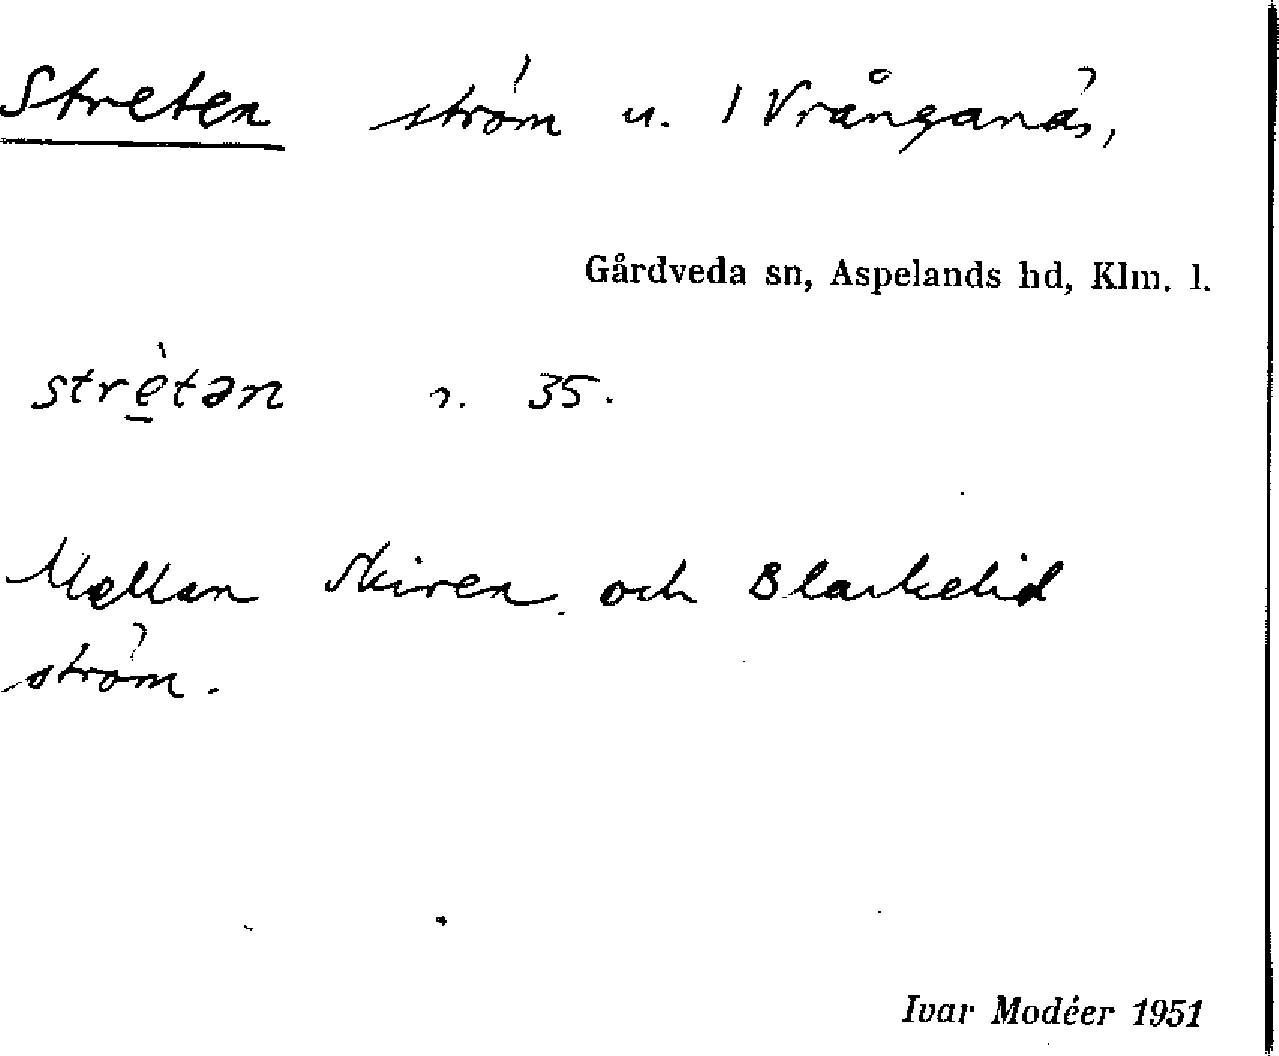 Streten ström u. 1 Vrånganäs,
Gårdveda sn, Aspelands hd, Klm. l.
strètən n. 35.
Mellan Skiren och Blankelid
ström.
Ivar Modéer 1951